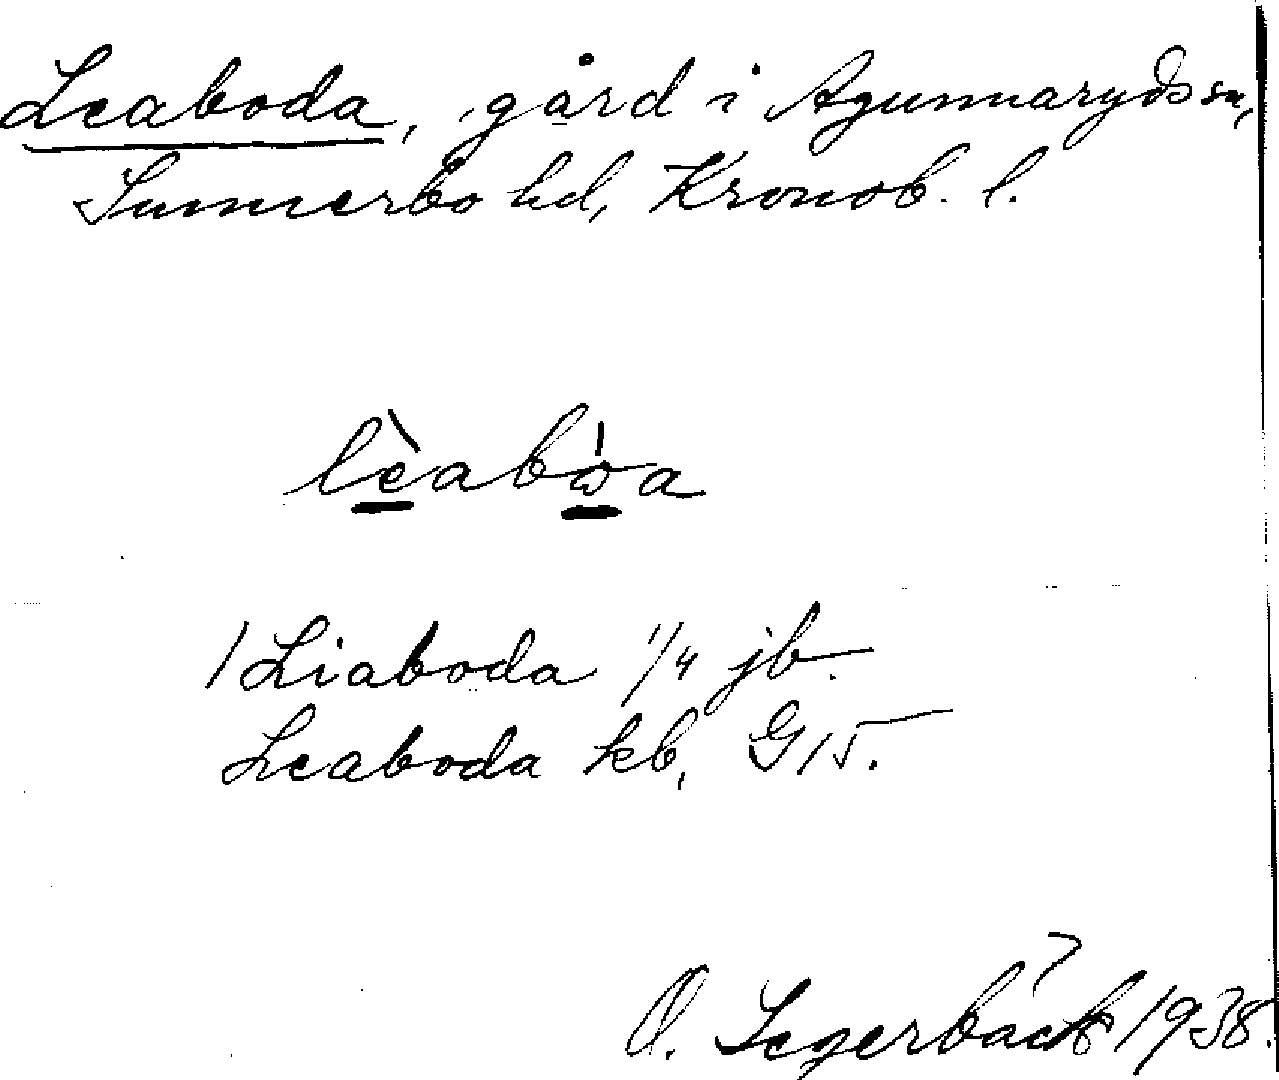 Leaboda, gård i Agunnaryds sn,
Sunnerbo hd, Kronob. l.
lèabẁa
1 Liaboda 1/4 jb.
Leaboda kb, G15.
O. Segerbäck 1938.